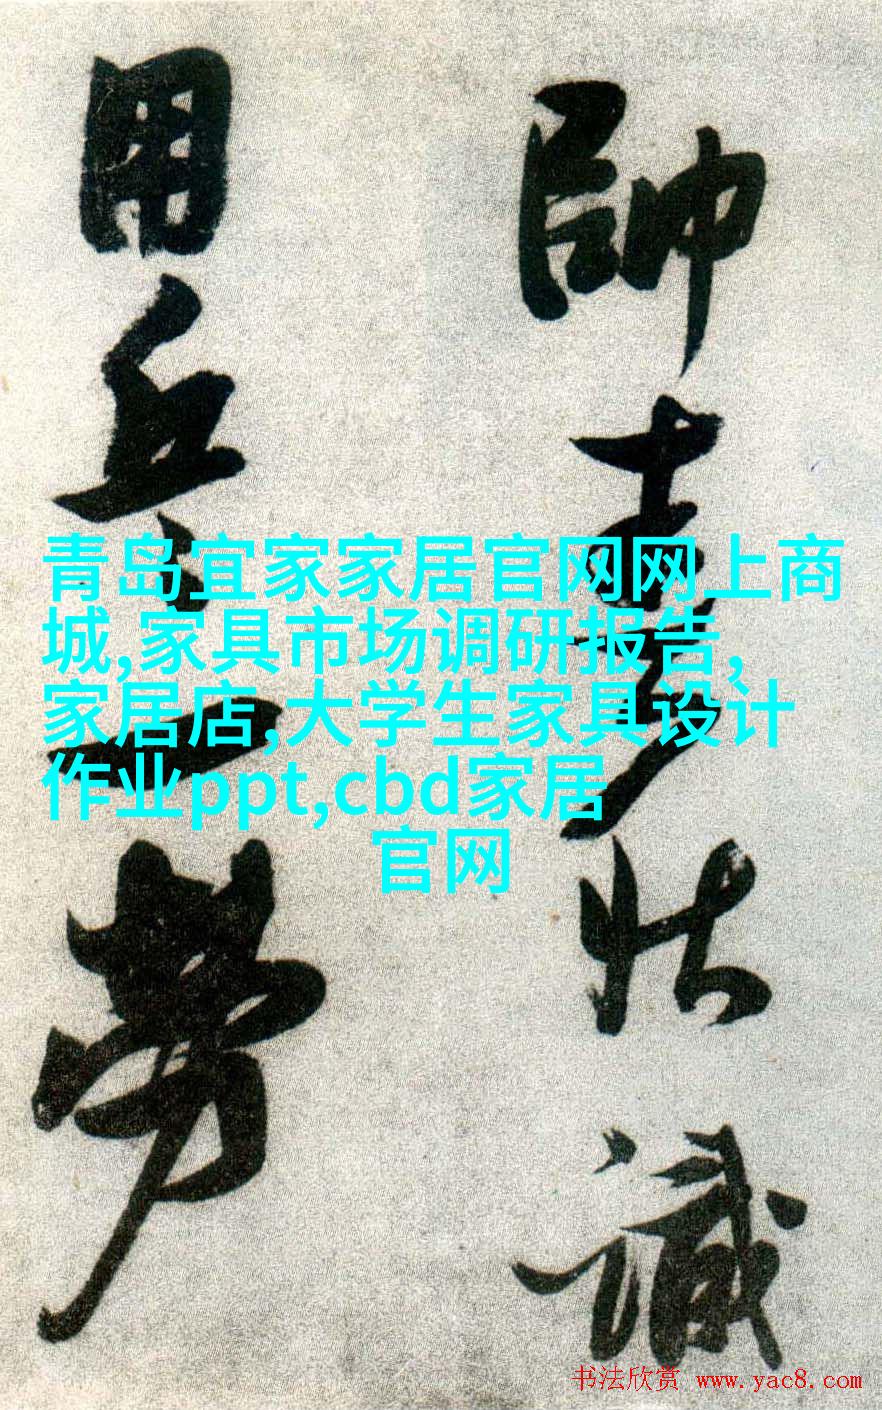 帥喜多壮識
用兵一劳
青岛宜家家居官网网上商
城,家具市场调研报告,
家居店,大学生家具设计
作业ppt,cbd家居
官网
书法欣赏 www.yac8.com